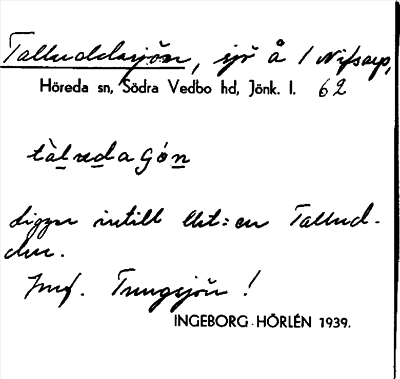 Talluddasjön, sjö å 1 Nifsarp,
Höreda sn, Södra Vedbo hd, Jönk. l. 62
tàludagón
Ligger intill Ult: en Tallud-
den.
Jmf. Trugsjön!
INGEBORG HÖRLÉN 1939.